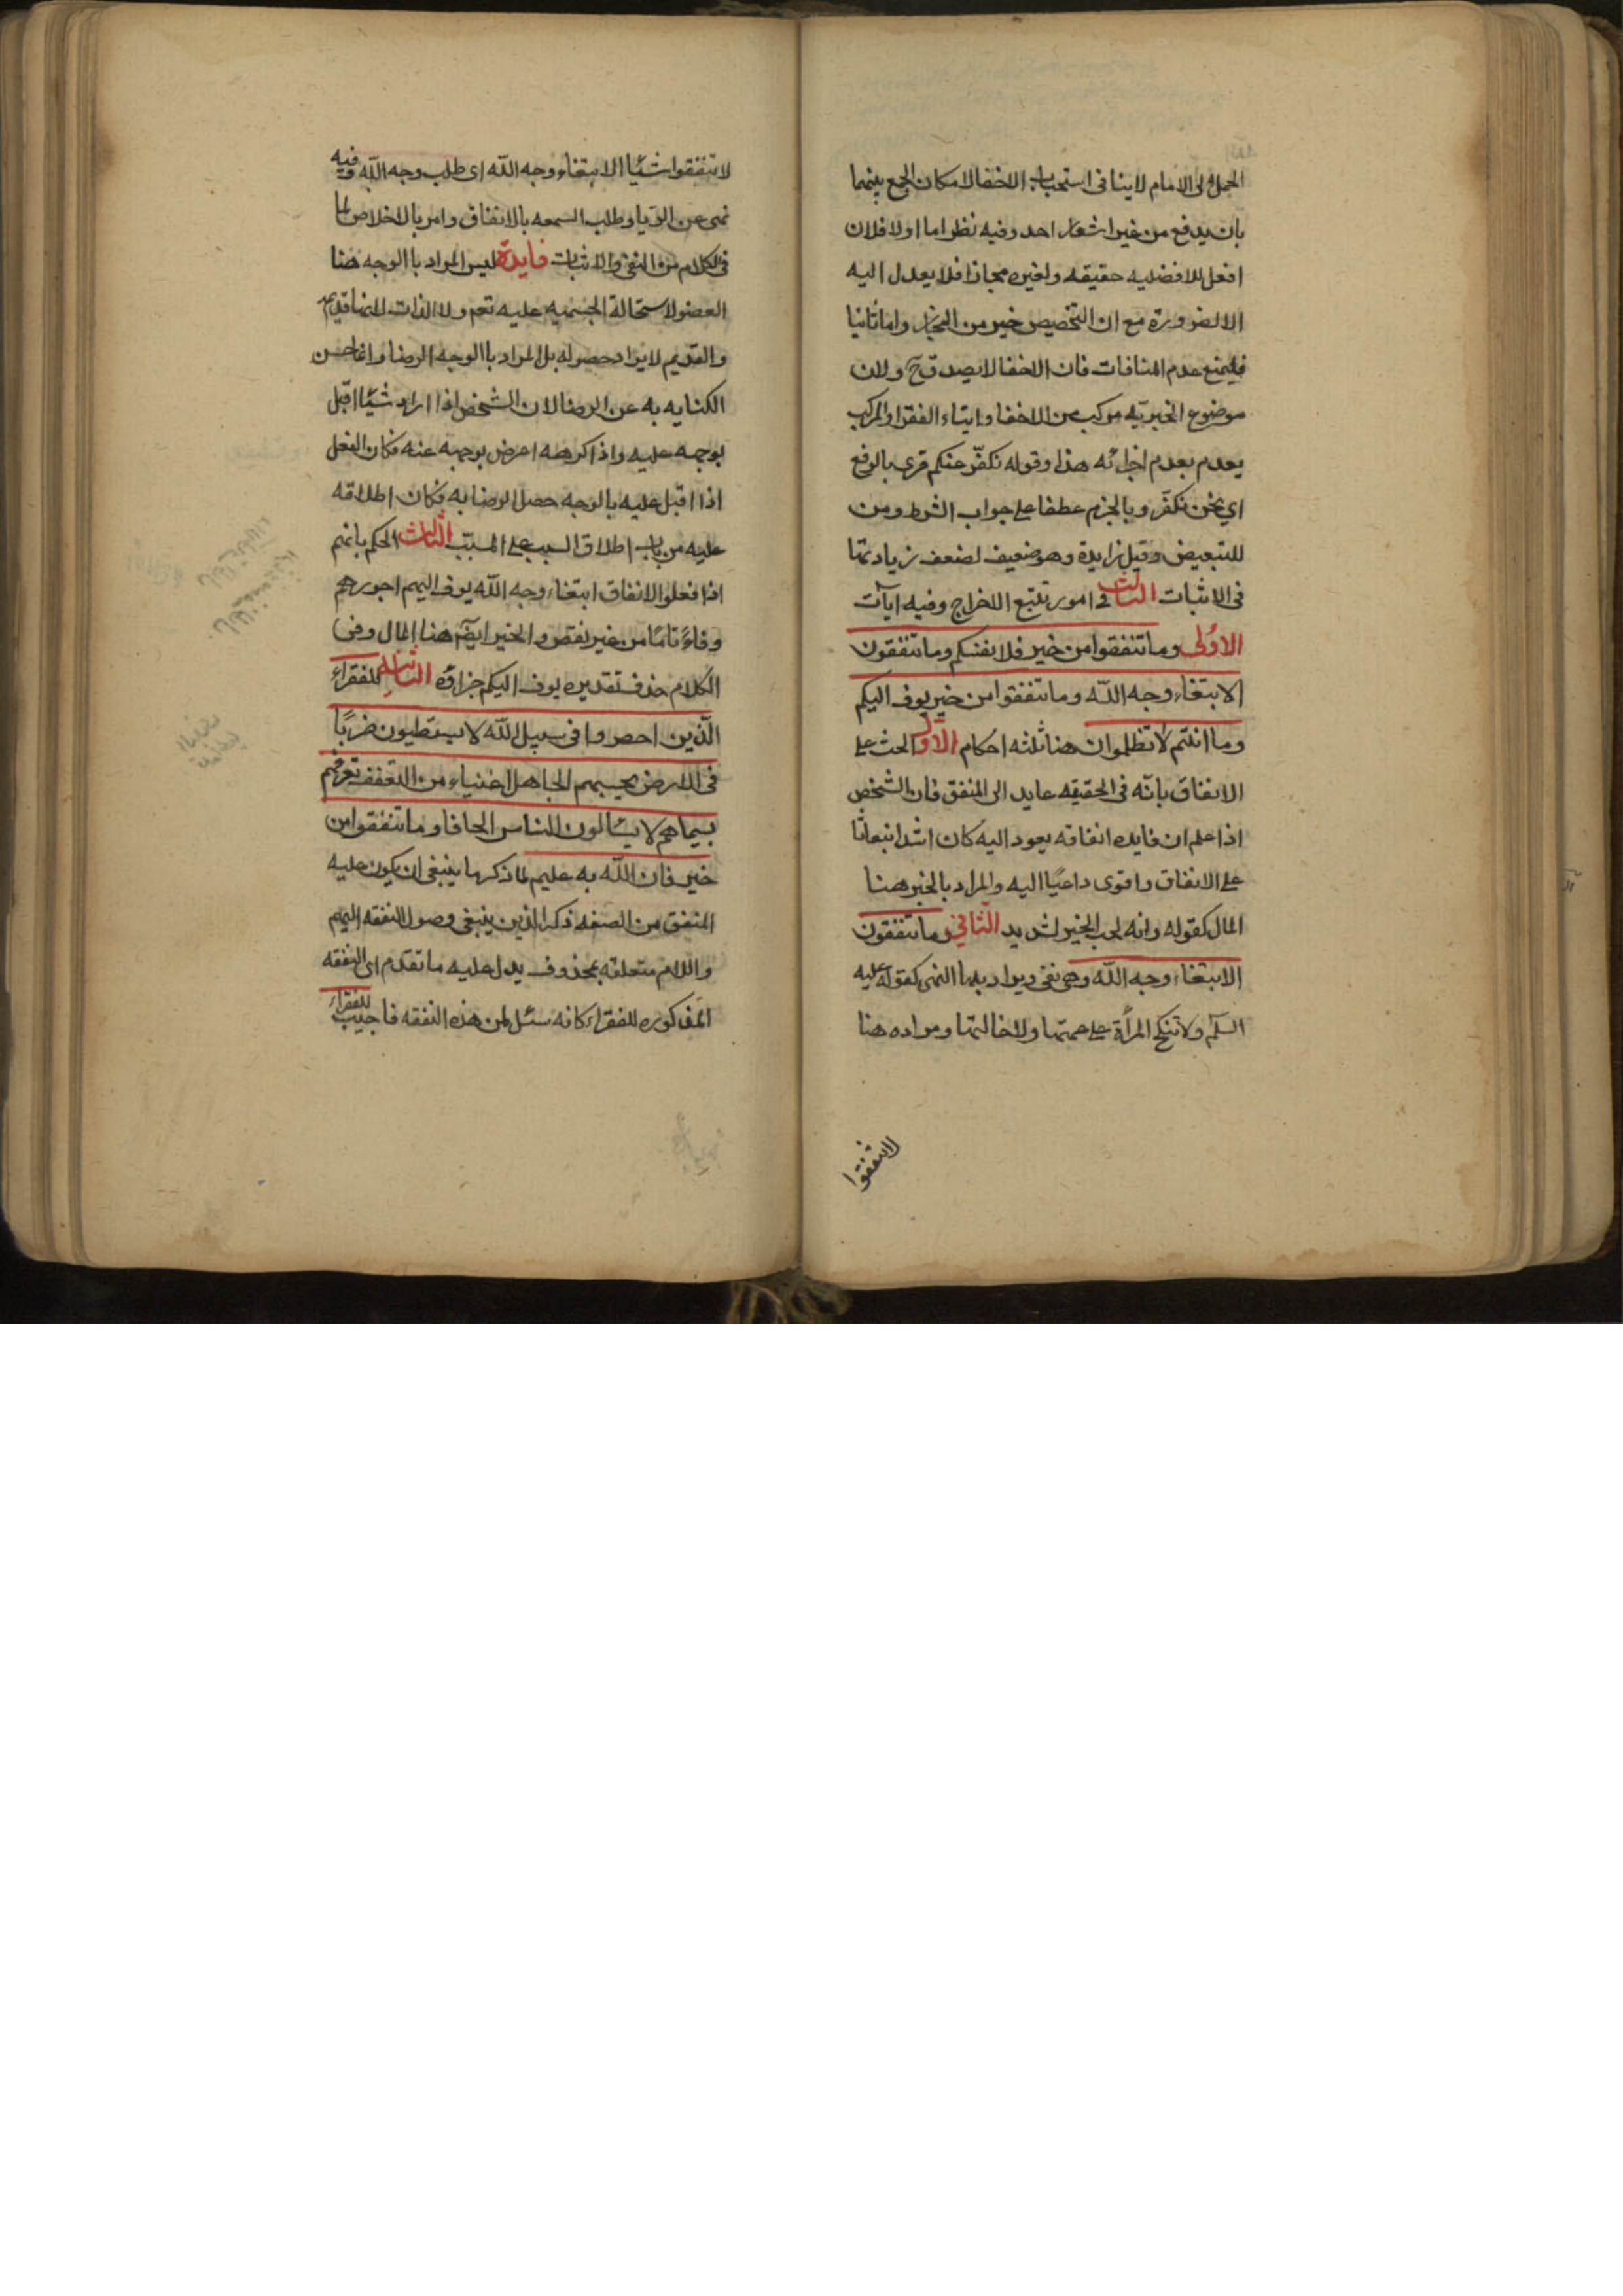 الحمل الى الامام لا ينافى استحباب الاخفا لامكان الجمع بينهما
بان يدفع من غير اشعار احد وفيه نظر اما اولا فلان
افعل للافضليه حقيقه ولغيره مجاز فلا يعدل اليه
الا لضرورة مع ان التخصيص خير من المجاز واما ثانيا
فلمنع عدم المنافات فان الاخفا لا يصدق ح ولان
موضوع الخيرية مركب من الاخفا وايتاء الفقرا والمركب
يعدم بعدم اجزائه هذا وقوله نكفّر عنكم قرى بالرفع
اي نحن نكفّر وبالجزم عطفا على جواب الشرط ومن
للتبعيض وقيل زايدة وهو ضعيف لضعف زيادتها
فى الاثبات الثالث فى امور تتبع الاخراج وفيه آيات
الاولى وما تنفقوا من خير فلانفسكم وما تنفقون
الا ابتغاء وجه اللّه وما تنفقوا من خير يوف اليكم
وما انتم لا تظلموان هنا ثلثه احكام الاول الحث على
الانفاق بانّه فى الحقيقه عايد الى المنفق فان الشخص
اذا علم ان فايده انفاقه يعود اليه كان اشد انبعاثا
على الانفاق واقوى داعيًا اليه والمراد بالخير هنا
المال كقوله وانه لحب الخير لشديد الثاني وما تنفقون
الا ابتغاء وجه اللّه وهى نفى ويراد بها النهى كقوله عليه
السلّم ولا تنكح المرأة على عمتها ولا خالتها ومراده هنا
لا تنفقوا
لا تنفقوا شيًا الا ابتغاء وجه اللّه اى طلب وجه اللّه وفيه
نهى عن الريا وطلب السمعه بالانفاق وامر بالاخلاص لما
فى الكلام من النفى والاثبات فايدة ليس المراد باالوجه هنا
العضو لاستحالة الجسميه عليه تعم ولا الذات لانها قديمه
والقديم لا يراد حصوله بل المراد باالوجه الرضا وانما حسن
الكنايه به عن الرضا لان الشخص اذا اراد شيًا اقبل
بوجهه عليه واذا كرهه اعرض بوجهه عنه فكان الفعل
اذا اقبل عليه بالوجه حصل الرضا به فكان اطلاقه
عليه من باب اطلاق السبب على المسبّب الثالث الحكم بانهم
اذا فعلوا الانفاق ابتغاء وجه اللّه يوف اليهم اجورهم
وفاءً تامًا من غير نقص والخير ايضًا هنا المال وفى
الكلام حذف تقديره يوف اليكم جزاؤه الثانية للفقراء
الّذين احصروا فى سبيل اللّه لا يستطيون ضربًا
فى الارض يحسبهم الجاهل اغنياء من التعفف تعرفهم
بسيماهم لا يسًالون الناس الحافا وما تنفقوا من
خير فان اللّه به عليم لما ذكر ما ينبغى ان يكون عليه
المنفق من الصفه ذكر الذين ينبغى وصول النفقه اليهم
واللام متعلقه بمحذوف يدل عليه ما تقدم اى النفقه
المذكوره للفقراء كانه سئل لمن هذه النفقه فاجيب للفقراء